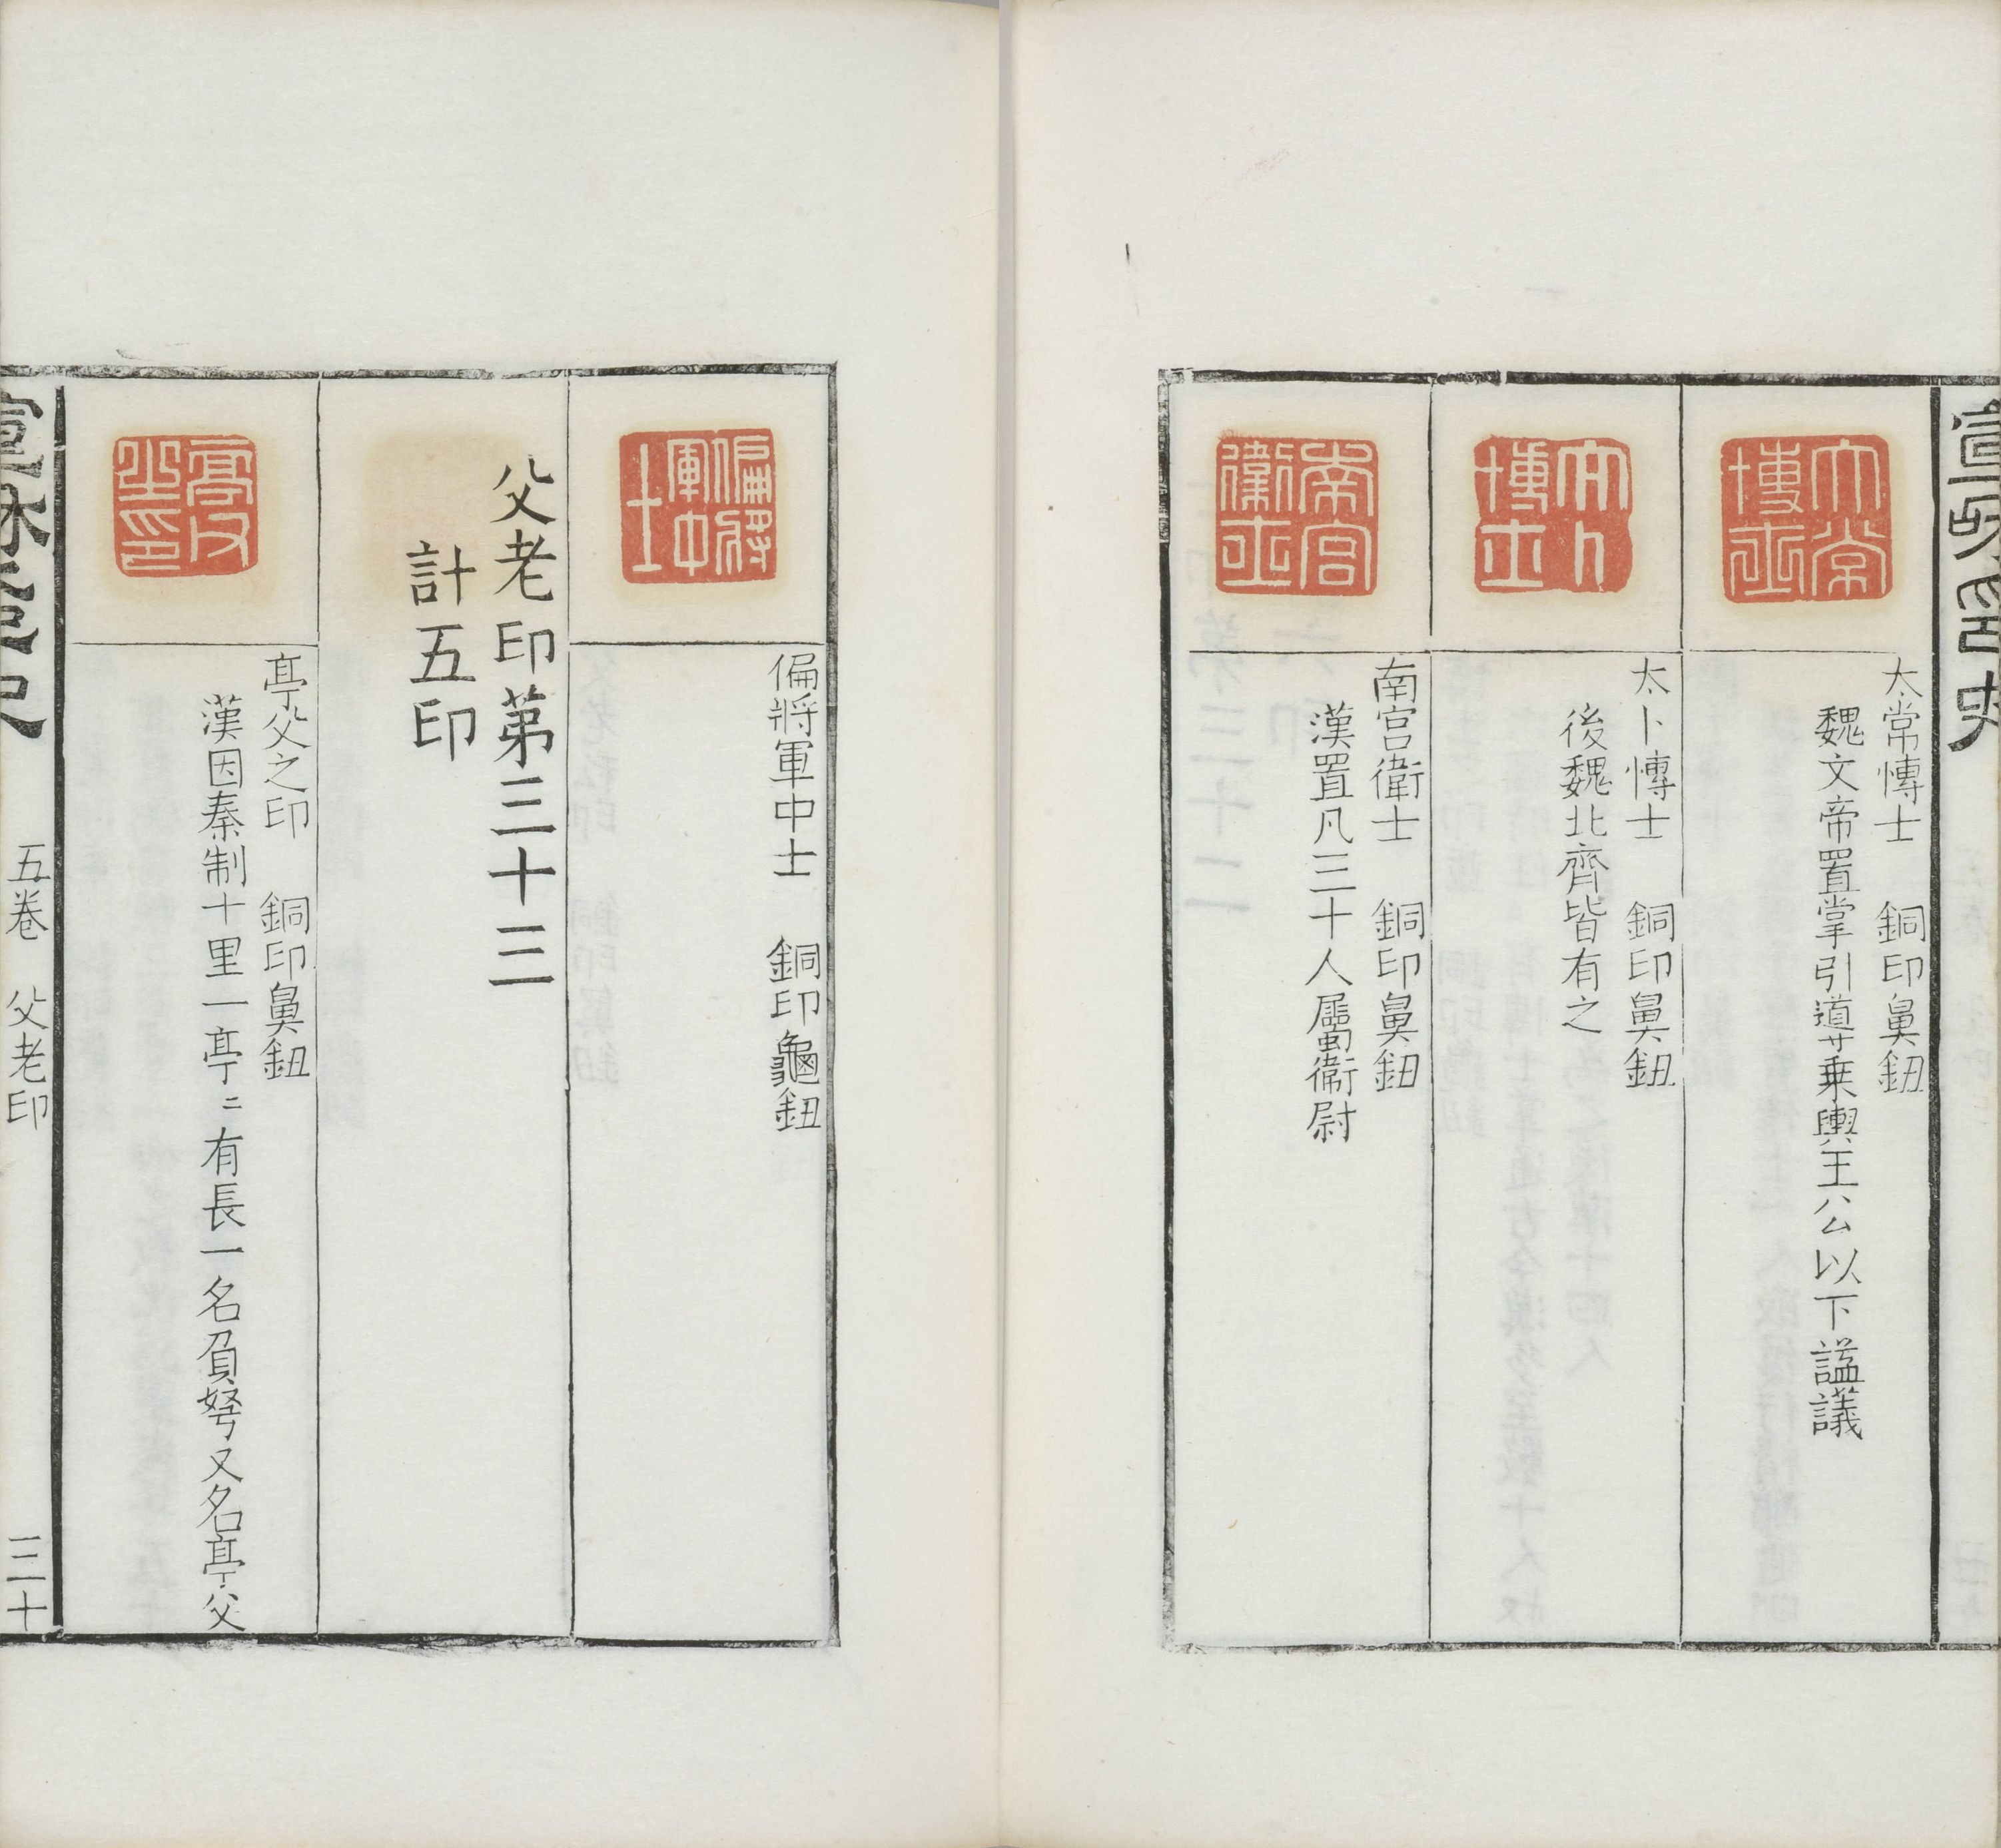 宣和印史
太常博士
太常愽士　銅印鼻鈕
魏文帝置掌引道乗輿王公以下謚議
太卜博士
太卜愽士　銅印鼻鈕
後魏北齊皆有之
南宮衛士
南宮衛士　銅印鼻鈕
漢置凡三十人屬衛尉
偏將軍中士
偏將軍中士　銅印龜鈕
父老印第三十三
計五印
亭父之印
亭父之印　銅印鼻鈕
漢因秦制十里一亭〻有長一名負弩又名亭父
五卷　父老印　三十